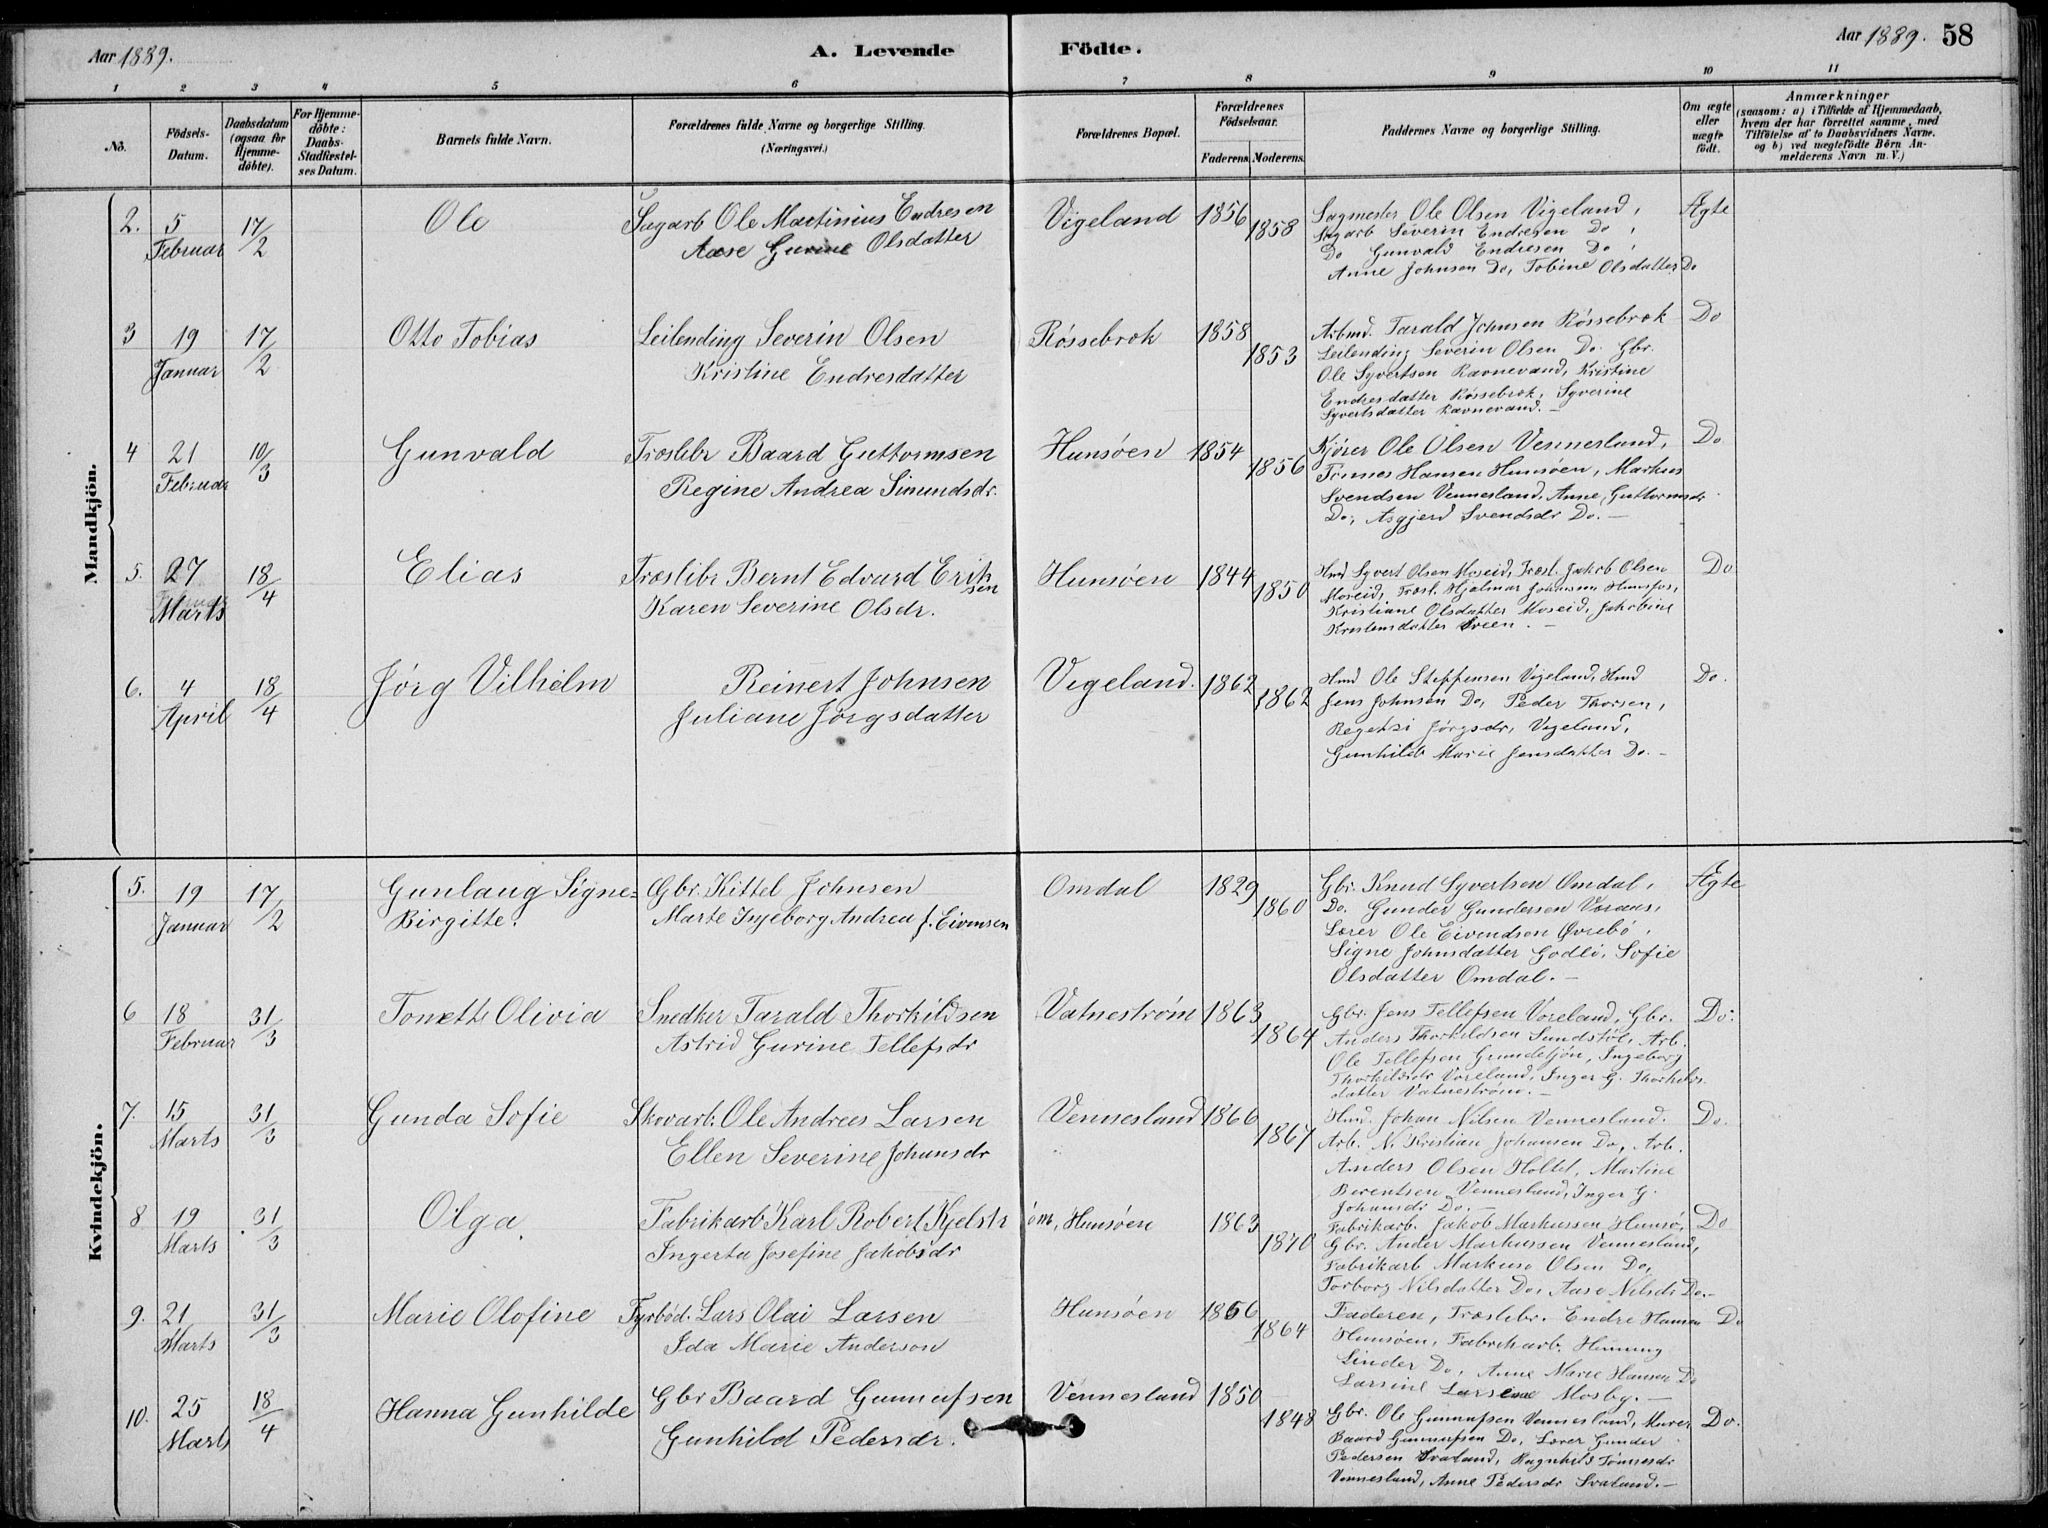 Aar 1889.
A. Levende Födte.
Aar 1889. 58
1 2 3 4 5 6 7 8 9 10 11
No.
Födsels-Datum.
Daabsdatum (ogsaa for Hjemme-döbte).
For Hjemme-döbte: Daabs-Stadfæstel-ses Datum.
Barnets fulde Navn.
Forældrenes fulde Navne og borgerlige Stilling.
(Næringsvei.)
Forældrenes Bopæl.
Forældrenes Födselsaar.
Faderens. Moderens.
Faddernes Navne og borgerlige Stilling.
Om ægte eller uægte födt.
Anmærkninger
(saasom: a) i Tilfælde af Hjemmedaab,
hvem der har forrettet samme, med
Tilföielse af to Daabsvidners Navne.
og b) ved uægtefödte Börn An-
melderens Navn m. V.)
Mandkjön.
2. 5 Februar 17/2
Ole
Sagarb Ole Martinius Endresen
Aase Gurine Olsdatter
Vigeland 1856 1858
Sagmester Ole Olsen Vigeland,
Sagarb Severin Endresen Do,
Do Gunvald Endresen Do,
Anne Johnsen Do, Tobine Olsdatter Do
Ægte
3 19 Januar 17/2
Otto Tobias
Leilending Severin Olsen
Kristine Endresdatter
Røssebrok 1858 1853
Arbmd. Tarald Johnsen Røssebrok
Leilending Severin Olsen Do. Gbr.
Ole Syvertsen Ravnevand, Kristine
Endresdatter Røssebrok, Syverine
Syvertsdatter Ravnevand.-
Do
4 21 Februar 10/3
Gunvald
Træslibr Baard Guttormsen
Regine Andrea Simundsdr.
Hunsøen 1854 1856
Kjører Ole Olsen Vennesland,
Tønnes Hansen Hunsøen, Markus
Svendsen Vennesland, Anne Guttormsdr
Do, Asgjerd Svendsdr Do.-
Do
5. 27 Marts 18/4
Elias
Træslibr Bernt Edvard Eriksen
Karen Severine Olsdr.
Hunsøen 1844 1850
Hmd Syvert Olsen Moseid, Træsl. Jakob Olsen
Moseid, Træsl. Hjalmar Johansen Hunsfos,
Kristiane Olsdatter Moseid, Jakobine
Kristensdatter Sveen.-
Do
6. 4 April 18/4
Jørg Vilhelm
Reinert Johnsen
Juliane Jørgsdatter
Vigeland. 1862 1862
Hmd Ole Steffensen Vigeland, Hmd
Jens Johnsen Do, Peder Thorsen,
Jørgsdr, Vigeland,
Gunhild Marie Jensdatter Do.-
Do.
Kvindekjön.
5. 19 Januar 17/2
Gunlaug Signe=
Birgitte.
Gbr. Kittel Johnsen
Marte Ingeborg Andrea f. Eivensen
Omdal 1829 1860
Gbr. Knud Syvertsen Omdal,
Do. Gunder Gundersen
Lærer Ole Eivendsen Øvrebø,
Signe Johnsdatter Godli, Sofie
Olsdatter Omdal.-
Ægte
6 18 Februar 31/3
Tonette Olivia
Snedker Tarald Thorkildsen
Astrid Gurine Tellefsdr
Vatnestrøm 1863 1864
Gbr. Jens Tellefsen Voreland, Gbr.
Anders Thorkildsen Sundstøl, Arb.
Ole Tellefsen Grundetjøn, Ingeborg
Thorkildsdr Voreland, Inger G. Thorkilds
datter Vatnestrøm.-
Do.
7. 15 Marts 31/3
Gunda Sofie
Skovarb. Ole Andreas Larsen
Ellen Severine Johansdr
Vennesland 1866 1867
Hmd. Johan Nilsen Vennesland.
Arb. N. Kristian Johansen Do, Arb.
Anders Olsen Holtet, Martine
Berentsen Vennesland, Inger G.
Johansdr Do.-
Do.
8 19 Marts 31/3
Olga.
Fabrikarb Karl Robert Kjelstrøm,
Ingerta Josefine Jakobsdr
Hunsøen 1863 1870
Fabrikarb. Jakob Markussen Hunsø,
Gbr. Ander Markussen Vennesland,
Fabrikarb Markus Olsen Do,
Torborg Nilsdatter Do, Aase Nilsdr Do.-
Do
9. 21 Marts 31/3
Marie Olofine
Fyrbød. Lars Olai Larsen
Ida Marie Anderson
Hunsøen 1866 1864
Faderen, Træslibr. Endre Hansen
Hunsøen, Fabrikarb. Henning
Linder Do, Anne Marie Hansen Do
Larsine Larsen Mosby.-
Do
10. 25 Marts 18/4
Hanna Gunhilde
Gbr Baard Gunnufsen
Gunhild Pedersdr.
Vennesland 1850 1848
Gbr. Ole Gunnufsen Vennesland, Murer
Baard Gunnufsen Do, Lærer Gunder
Pedersen Svaland, Ragnhild Tønnesdr
Vennesland, Anne Pedersdr Svaland.-
Do.